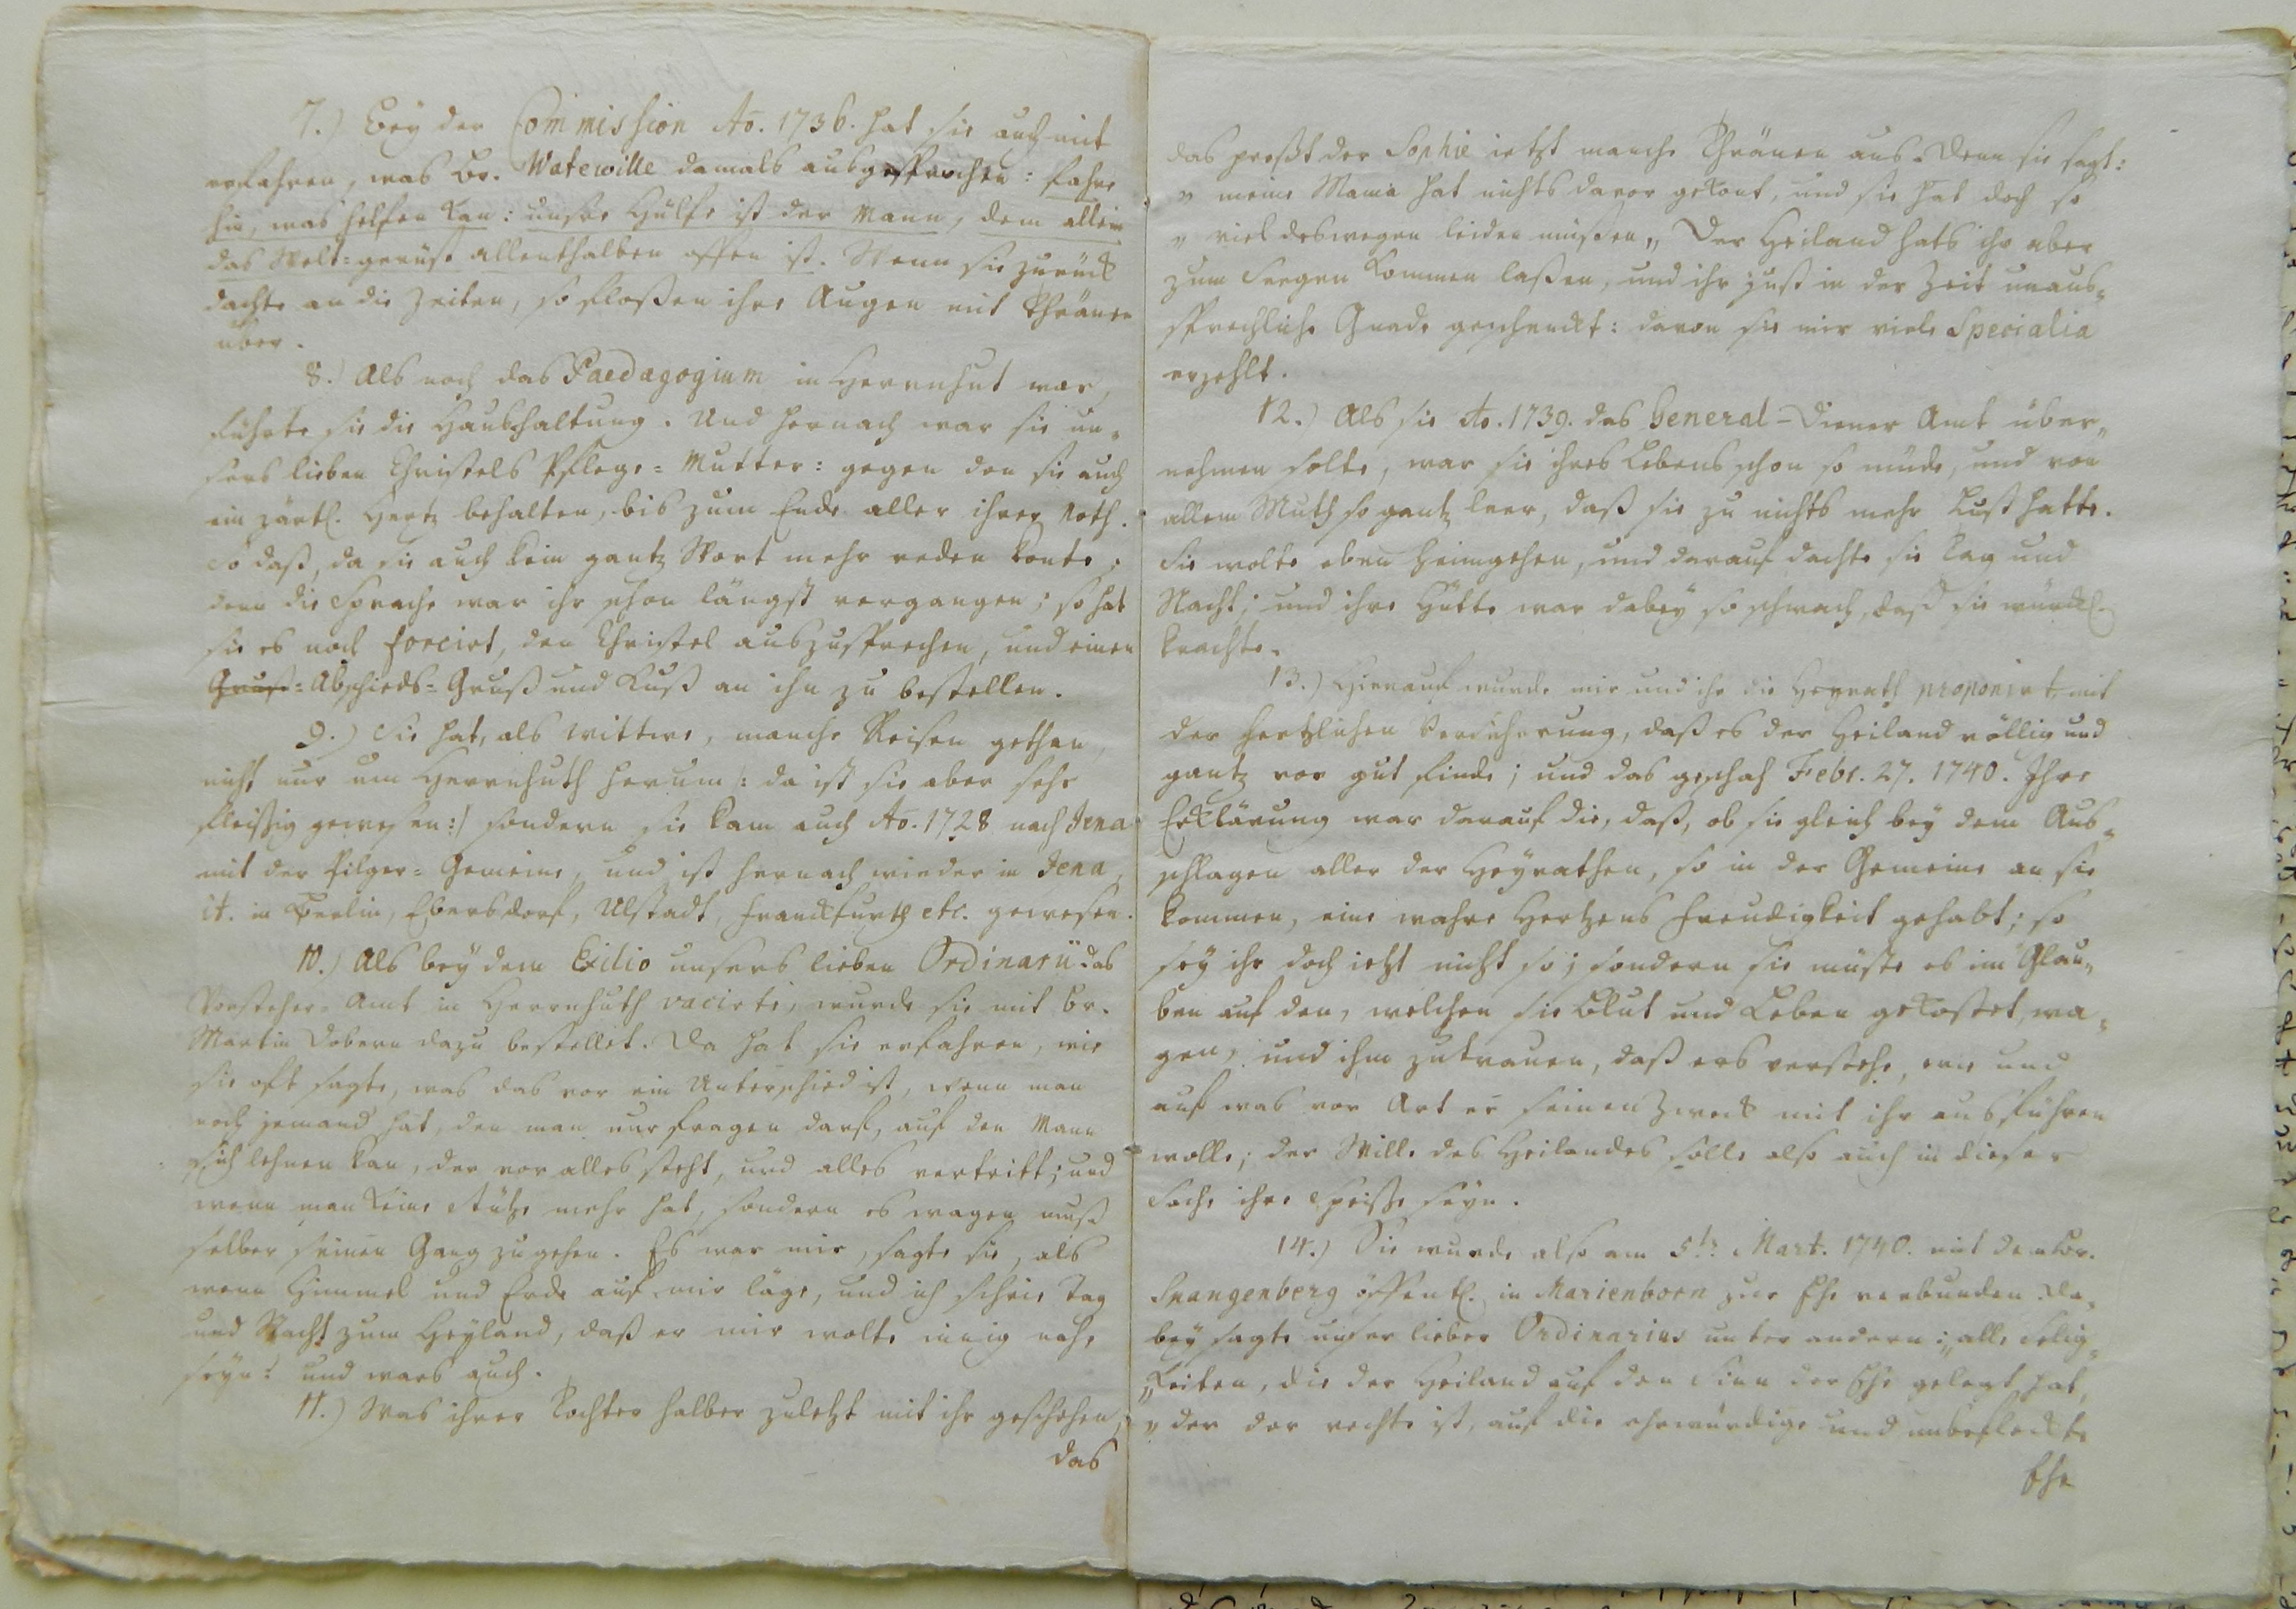 7.) Bey der Commission Ao. 1736. hat sie auch mit
erfahren, was Br. Watewille damals ausgesprochen: fahre
hin, was helfen kan: unsre Hülfe ist der Mann, dem allein
das Welt-gerüst allenthalben offen ist. Wenn sie zurück
dachte an die Zeiten, so floßen ihre Augen mit Thränen
über.
8.) Als noch das Paedagogium in Herrnhut war,
führte sie die Haushaltung. Und hernach war sie un-
sers lieben Christels Pflege-Mutter: gegen den sie auch
ein zärtl. Hertz behalten, bis zum Ende aller ihrer Noth.
So daß, da sie auch kein gantz Wort mehr reden konte,
denn die Sprache war ihr schon längst vergangen; so hat
sie es noch forcirt, den Christel auszusprechen, und einen
Gruß-Abschieds-Gruß und Kuß an ihn zu bestellen.
9.) Sie hat, als Wittwe, manche Reisen gethan,
nicht nur um Herrnhuth herum /: da ist sie aber sehr
fleissig gewesen :/ sondern sie kam auch Ao. 1728 nach Jena
mit der Pilger-Gemeine, und ist hernach wieder in Jena,
it. in Berlin, Ebersdorf, Ulstadt, Franckfurth etc. gewesen.
10.) Als bey dem Exilio unsers lieben Ordinarii das
Vorsteher-Amt in Herrnhuth vacirte, wurde sie mit Br.
Martin Dobern dazu bestellet. Da hat sie erfahren, wie
sie oft sagte, was das vor ein Unterschied ist, wenn man
noch jemand hat, den man nur fragen darf, auf den Mann
sich lehnen kan, der vor alles steht, und alles vertritt; und
wenn man keine Stütze mehr hat, sondern es wagen muß
selber seinen Gang zu gehen. Es war mir, sagte sie, als
wenn Himmel und Erde auf mir läge, und ich schrie Tag
und Nacht zum Heyland, daß er mir wolte innig nahe
seyn: und wars auch.
11.) Was ihrer Tochter halber zuletzt mit ihr geschehen,
das
das preßt der Sophie ietzt manche Thränen aus. Denn sie sagt:
„ meine Mama hat nichts davor gekont, und sie hat doch so
„ viel deswegen leiden müßen„ Der Heiland hats ihr aber
zum Seegen kommen laßen, und ihr just in der Zeit unaus-
sprechliche Gnade geschenckt: davon sie mir viele Specialia
erzehlt.
12.) Als sie Ao. 1739. das General-Diener Amt über-
nehmen solte, war sie ihres Lebens schon so müde, und von
allem Muth so gantz leer, daß sie zu nichts mehr Lust hatte.
Sie wolte eben heimgehen, und darauf dachte sie Tag und
Nacht; und ihre Hütte war dabey so schwach, daß sie würckl.
krachte.
13.) Hierauf wurde mir und ihr die Heyrath proponirt, mit
der hertzlichen Versicherung, daß es der Heiland völlig und
gantz vor gut finde; und das geschah Febr. 27. 1740. Ihre
Erklärung war darauf die, daß, ob sie gleich bey dem Aus-
schlagen aller der Heyrathen, so in der Gemeine an sie
kommen, eine wahre Hertzens Freudigkeit gehabt; so
sey ihr doch ietzt nicht so; sondern sie müste es im Glau-
ben auf den, welchen sie Blut und Leben gekostet, wa-
gen, und ihm zutrauen, daß ers verstehe, wie und
auf was vor Art er seinen Zweck mit ihr ausführen
wolle; der Wille des Heilandes solle also auch in dieser
Sache ihre Speiße seyn.
14.) Sie wurde also am 5ten Mart. 1740. mit dem Br.
Spangenberg öffentl. in Marienborn zur Ehe verbunden. Da-
bey sagte unser lieber Ordinarius unter andern: „alle Selig-
„keiten, die der Heiland auf den Sinn der Ehe gelegt hat,
„ der der rechte ist, auf die ehrwürdige und unbefleckte
Ehe